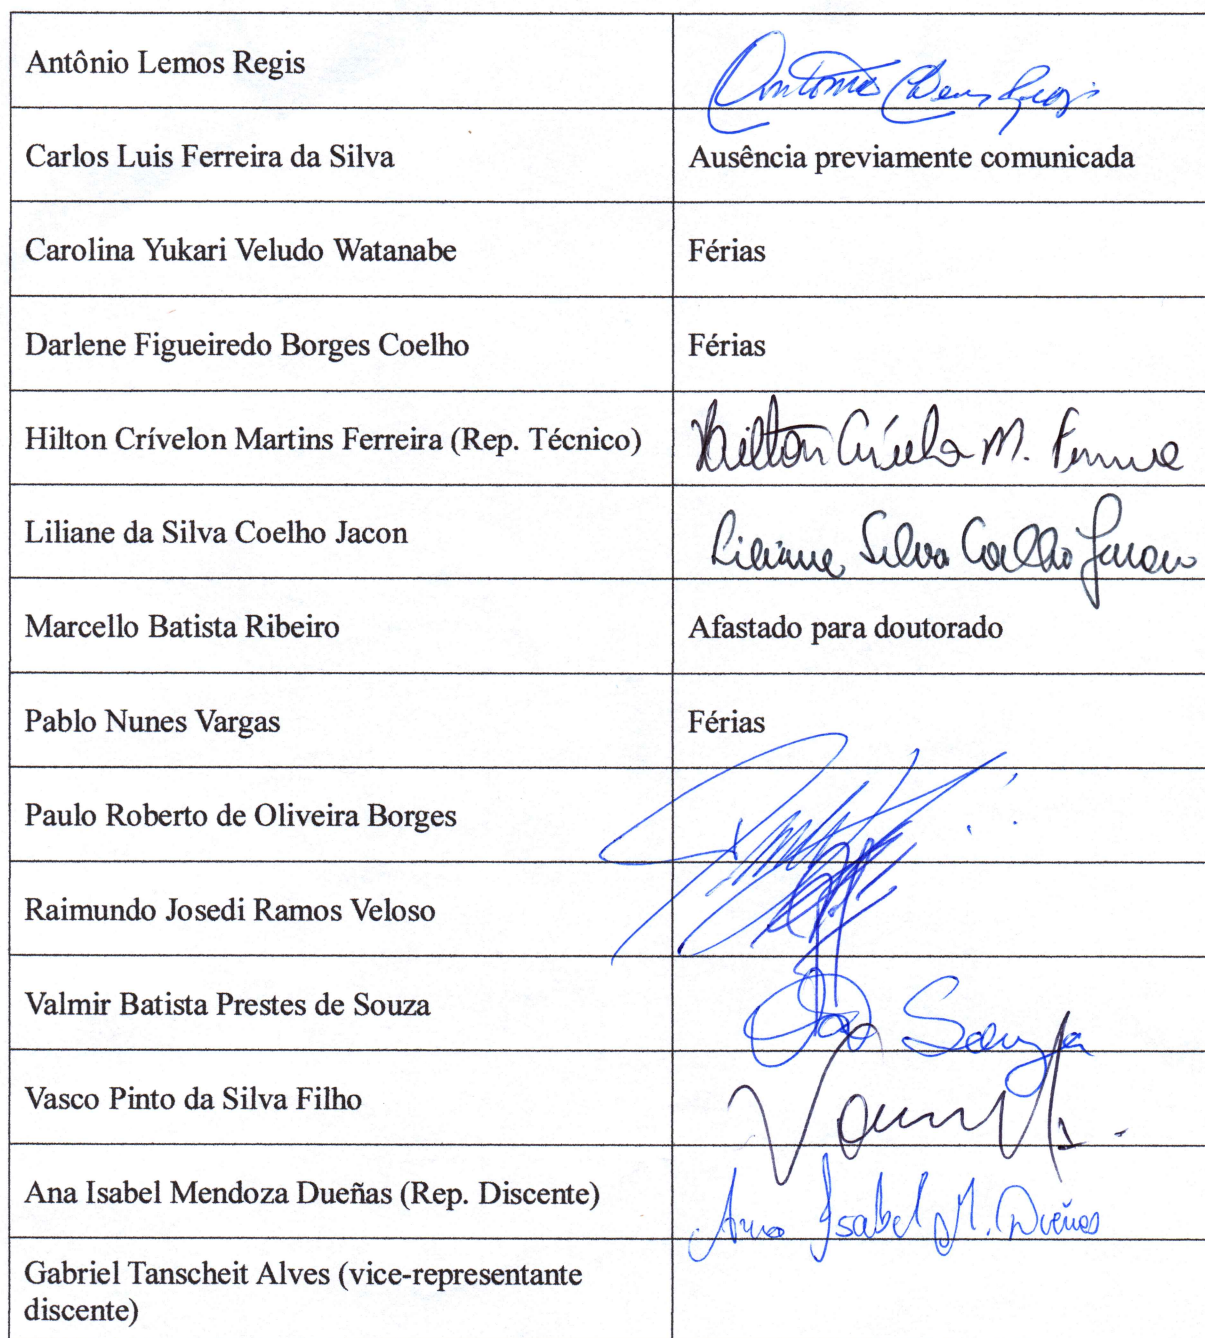 Antônio Lemos Regis
Antonio Lemos Regis
Carlos Luis Ferreira da Silva
Ausência previamente comunicada
Carolina Yukari Veludo Watanabe
Férias
Darlene Figueiredo Borges Coelho
Férias
Hilton Crívelon Martins Ferreira (Rep. Técnico)
Hilton M. Ferreira
Liliane da Silva Coelho Jacon
Liliane Silva Coelho Jacon
Marcello Batista Ribeiro
Afastado para doutorado
Pablo Nunes Vargas
Férias
Paulo Roberto de Oliveira Borges
Raimundo Josedi Ramos Veloso
Valmir Batista Prestes de Souza
Souza
Vasco Pinto da Silva Filho
Ana Isabel Mendoza Dueñas (Rep. Discente)
Ana Isabel M. Dueñas
Gabriel Tanscheit Alves (vice-representante
discente)